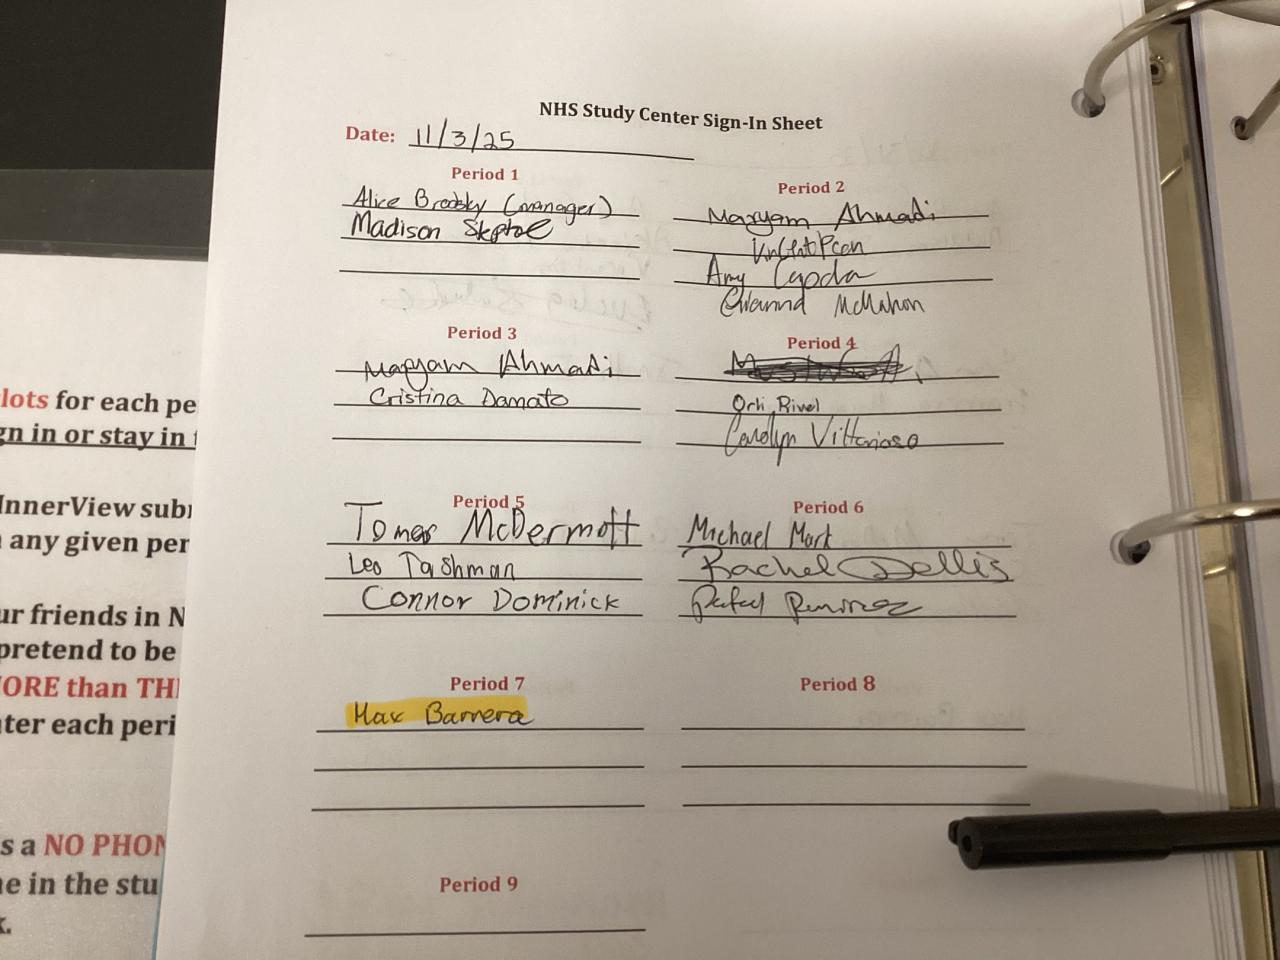 NHS Study Center Sign-In Sheet
Date: 11/3/25
Period 1
Alice Brodsky (manager)
Madison
Period 2
Maryam Ahmadi
Amy
McMahon
Period 3
Maryam Ahmadi
Cristina Damato
Period 4
Carolyn Vittorioso
Period 5
McDermott
Leo Tashman
Connor Dominick
Period 6
Michael Mark
Rachel Dellis
Rafael Ramirez
Period 7
Max Barrera
Period 8
Period 9
lots for each pe
gn in or stay in
InnerView sub
any given per
ur friends in N
pretend to be
ORE than TH
ter each peri
s a NO PHON
e in the stu